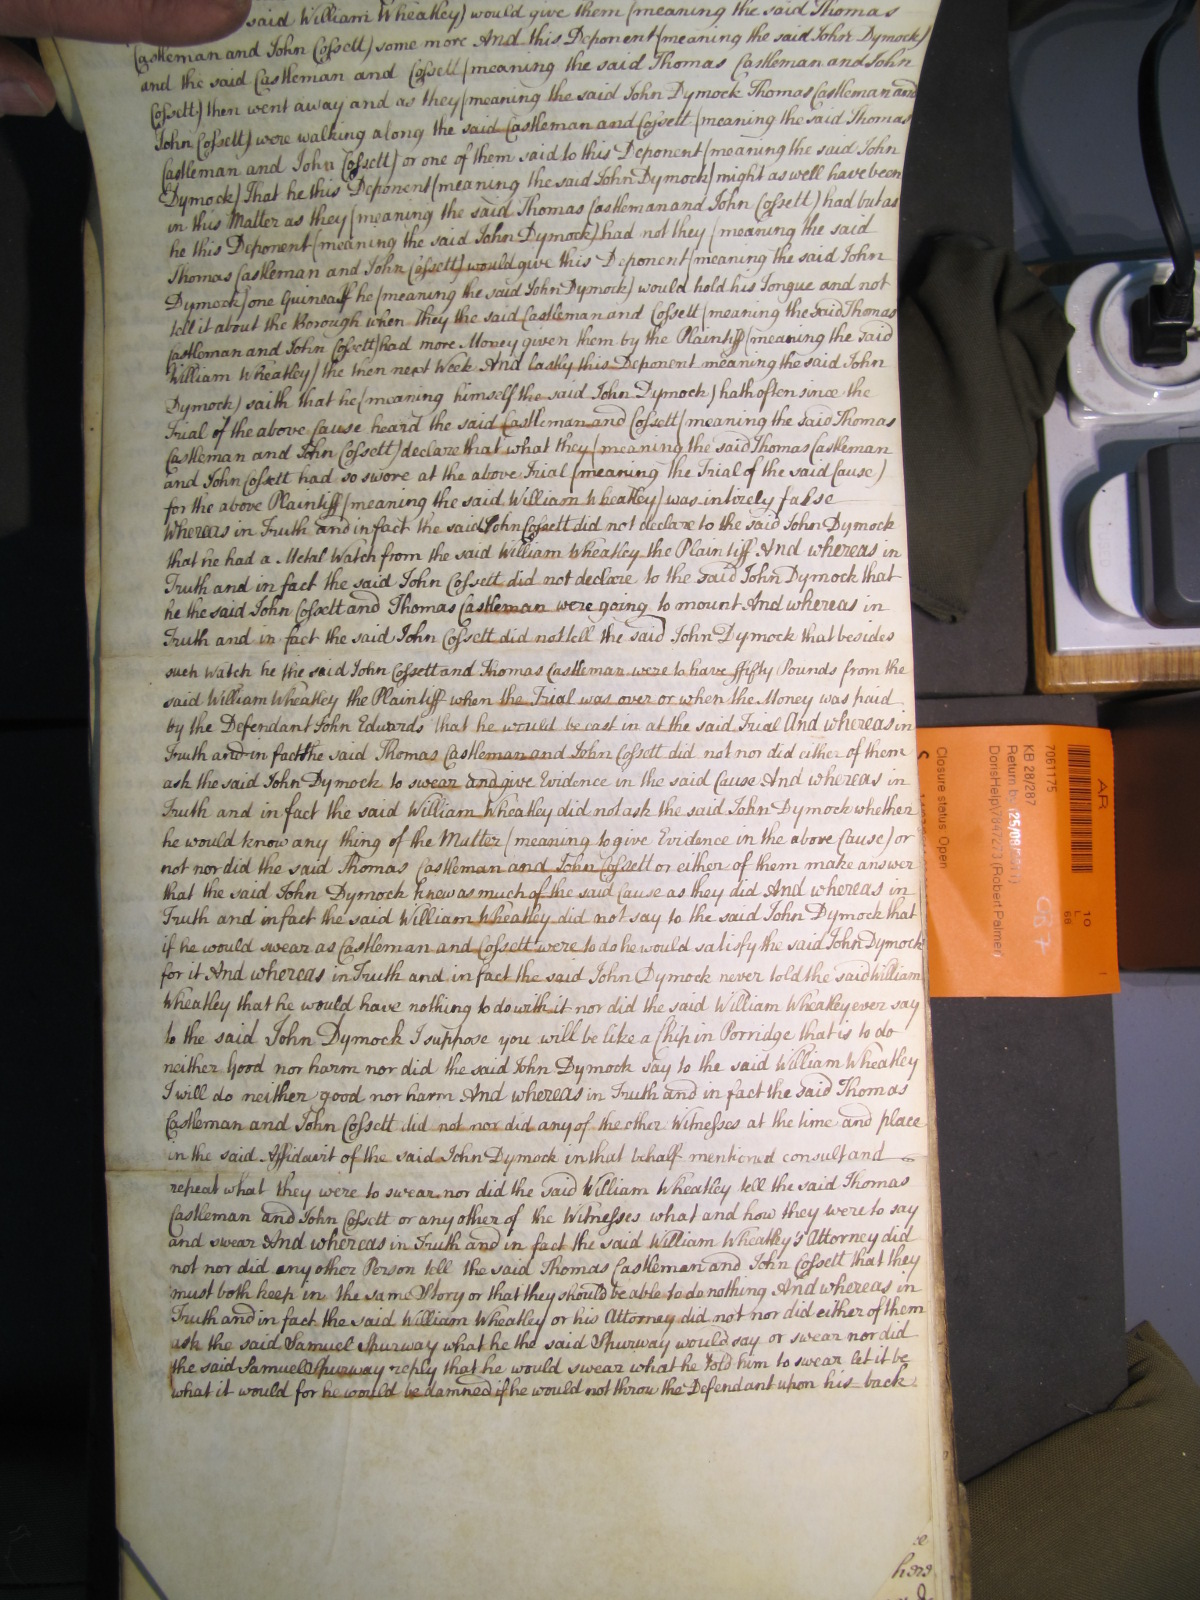 said William Wheatley) would give them (meaning the said Thomas
Castleman and John Cossett) some more And this Deponent (meaning the said John Dymock)
and the said Castleman and Cossett (meaning the said Thomas Castleman and John
Cossett) then went away and as they (meaning the said John Dymock Thomas Castleman and
John Cossett) were walking along the said Castleman and Cossett (meaning the said Thomas
Castleman and John Cossett) or one of them said to this Deponent (meaning the said John
Dymock) That he this Deponent (meaning the said John Dymock) might as well have been
in this Matter as they (meaning the said Thomas Castleman and John Cossett) had but as
he this Deponent (meaning the said John Dymock) had not they (meaning the said
Thomas Castleman and John Cossett) would give this Deponent (meaning the said John
Dymock) one Guinea if he (meaning the said John Dymock) would hold his Tongue and not
tell it about the Borough when they the said Castleman and Cossett (meaning the said Thomas
Castleman and John Cossett) had more Money given them by the Plaintiff (meaning the said
William Wheatley) the then next Week And lastly this Deponent meaning the said John
Dymock) saith that he (meaning himself the said John Dymock) hath often since the
Trial of the above Cause heard the said Castleman and Cossett (meaning the said Thomas
Castleman and John Cossett) declare that what they (meaning the said Thomas Castleman
and John Cossett had so swore at the above Trial (meaning the Trial of the said Cause)
for the above Plaintiff (meaning the said William Wheatley) was intirely false
Whereas in Truth and in fact the said John Cossett did not declare to the said John Dymock
that he had a Metal Watch from the said William Wheatley the Plaintiff And whereas in
Truth and in fact the said John Cossett did not declare to the said John Dymock that
he the said John Cossett and Thomas Castleman were going to mount And whereas in
Truth and in fact the said John Cossett did not tell the said John Dymock that besides
such Watch he the said John Cossett and Thomas Castleman were to have ffifty Pounds from the
said William Wheatley the Plaintiff when the Trial was over or when the Money was paid
by the Defendant John Edwards that he would be cast in at the said Trial And whereas in
Truth and in fact the said Thomas Castleman and John Cossett did not nor did either of them
ask the said John Dymock to swear and give Evidence in the said Cause And whereas in
Truth and in fact the said William Wheatley did not ask the said John Dymock whether
he would know any thing of the Matter (meaning to give Evidence in the above Cause) or
not nor did the said Thomas Castleman and John Cossett or either of them make answer
that the said John Dymock knew as much of the said Cause as they did And whereas in
Truth and in fact the said William Wheatley did not say to the said John Dymock that
if he would swear as Castleman and Cossett were to do he would satisfy the said John Dymock
for it And whereas in Truth and in fact the said John Dymock never told the said William
Wheatley that he would have nothing to do with it nor did the said William Wheatley ever say
to the said John Dymock I suppose you will be like a Chip in Porridge that is to do
neither Good nor harm nor did the said John Dymock say to the said William Wheatley
I will do neither good nor harm And whereas in Truth and in fact the said Thomas
Castleman and John Cossett did not nor did any of the other Witnesses at the time and place
in the said Affidavit of the said John Dymock in that behalf mentioned consult and
repeat what they were to swear nor did the said William Wheatley tell the said Thomas
Castleman and John Cossett or any other of the Witnesses what and how they were to say
and swear And whereas in Truth and in fact the said William Wheatley's Attorney did
not nor did any other Person tell the said Thomas Castleman and John Cossett that they
must both keep in the same Story or that they should be able to do nothing And whereas in
Truth and in fact the said William Wheatley or his Attorney did not nor did either of them
ask the said Samuel Spurway what he the said Spurway would say or swear nor did
the said Samuel Spurway reply that he would swear what he told him to swear let it be
what it would for he would be damned if he would not throw the Defendant upon his back
AR
7061175
KB 28/287
Return by 25/08/
DorisHelp7847273 (Robert Palmer)
Closure status: Open
10
L
68